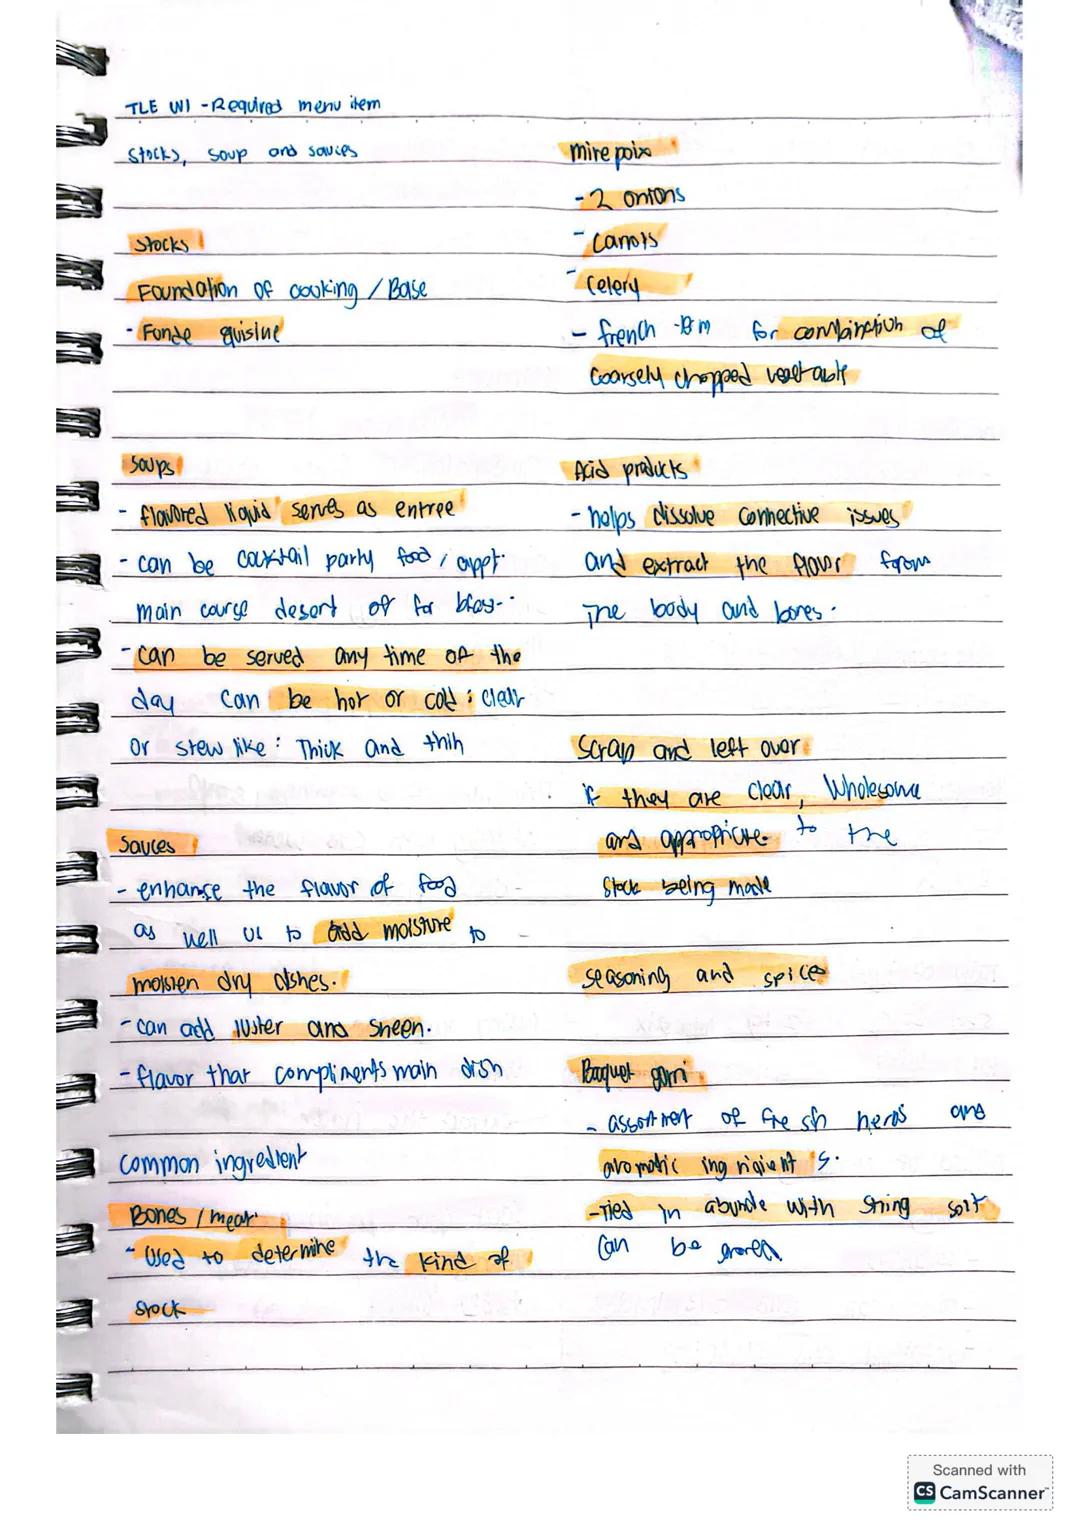 TLE W1 - Required menu item
Stocks, soup and sauces
Stocks
Foundation of cooking / Base
- Fonde quisine
Soups
- flavored liquid serves as entree
- can be cocktail party food / appt.
main course desert or for bfas..
- can be served any time of the
day can be hot or cold : clear
or stew like : Thick and thin
Sauces
- enhance the flavor of food
as well us to add moisture to
moisten dry dishes.
- can add luster and sheen.
- flavor that compliments main dish
common ingredient
Bones / meat
- Used to determine the kind of
stock
mire poix
- 2 onions
- Carrots
- Celery
- french term for combination of
coarsely chopped vegetable
Acid products
- helps dissolve connective issues
and extract the flavor from
The body and bones.
Scrap and left over
if they are clear, Wholesome
and appropriate to the
Stock being made
seasoning and spices
Boquet garni
- assortment of fresh herbs and
aromatic ingridient s.
- Tied in abundle with string soit
Can be
Scanned with
CS CamScanner